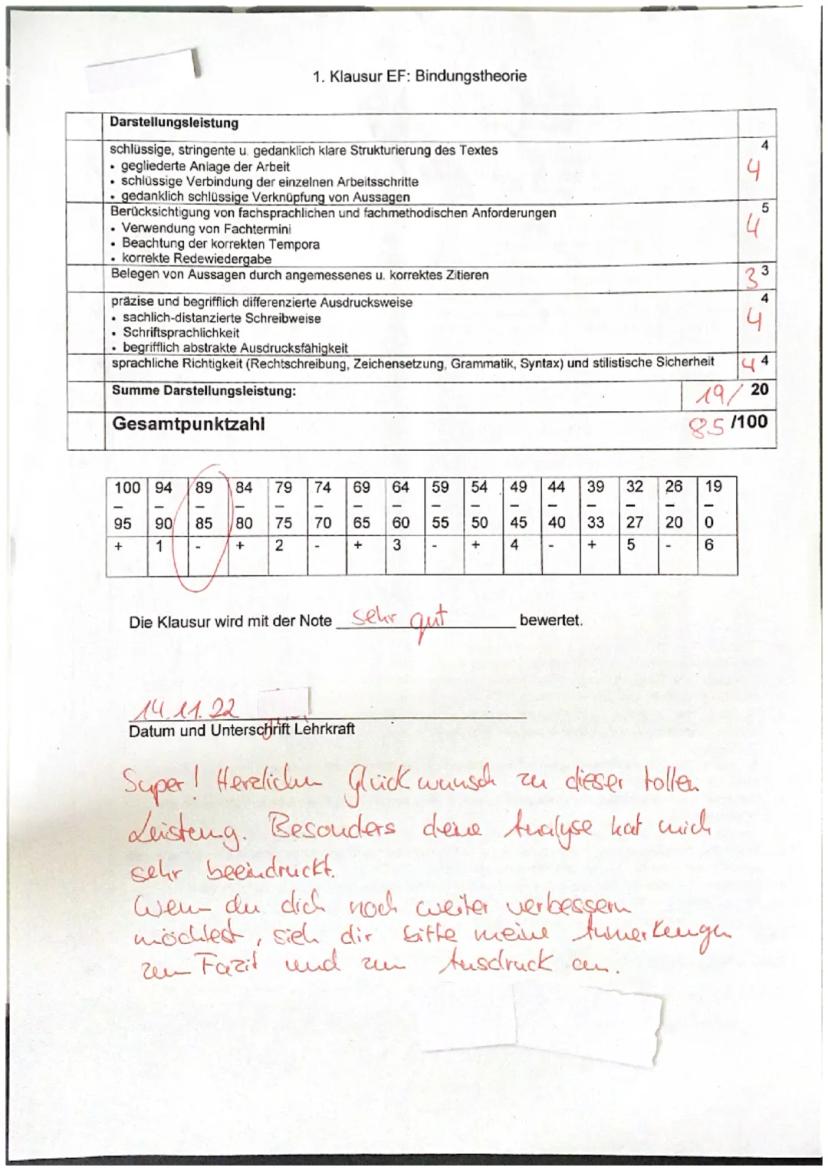 1. Klausur EF: Bindungstheorie
Darstellungsleistung
schlüssige, stringente u. gedanklich klare Strukturierung des Textes 4
• gegliederte Anlage der Arbeit 4
• schlüssige Verbindung der einzelnen Arbeitsschritte
• gedanklich schlüssige Verknüpfung von Aussagen
Berücksichtigung von fachsprachlichen und fachmethodischen Anforderungen 5
• Verwendung von Fachtermini 4
• Beachtung der korrekten Tempora
• korrekte Redewiedergabe
Belegen von Aussagen durch angemessenes u. korrektes Zitieren 3 3
präzise und begrifflich differenzierte Ausdrucksweise 4
• sachlich-distanzierte Schreibweise 4
• Schriftsprachlichkeit
• begrifflich abstrakte Ausdrucksfähigkeit
sprachliche Richtigkeit (Rechtschreibung, Zeichensetzung, Grammatik, Syntax) und stilistische Sicherheit 4 4
Summe Darstellungsleistung: 19/ 20
Gesamtpunktzahl 85 /100
100 94 89 84 79 74 69 64 59 54 49 44 39 32 26 19
– – – – – – – – – – – – – – – –
95 90 85 80 75 70 65 60 55 50 45 40 33 27 20 0
+ 1 - + 2 - + 3 - + 4 - + 5 - 6
Die Klausur wird mit der Note sehr gut bewertet.
14.11.22
Datum und Unterschrift Lehrkraft
Super! Herzlichen Glückwunsch zu dieser tollen
Leistung. Besonders deine Analyse hat mich
sehr beeindruckt.
Wenn du dich noch weiter verbessern
möchtest, sieh dir bitte meine Anmerkungen
zum Fazit und zum Ausdruck an.